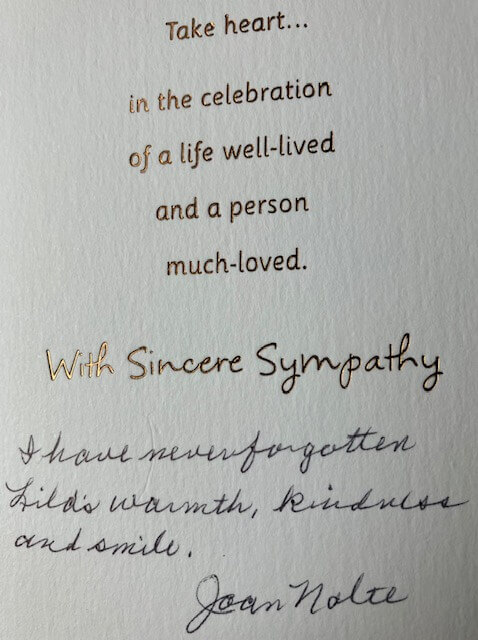 Take heart...
in the celebration
of a life well-lived
and a person
much-loved.
With Sincere Sympathy
I have never forgotten
Hilda's warmth, kindness
and smile.
Joan Nolte